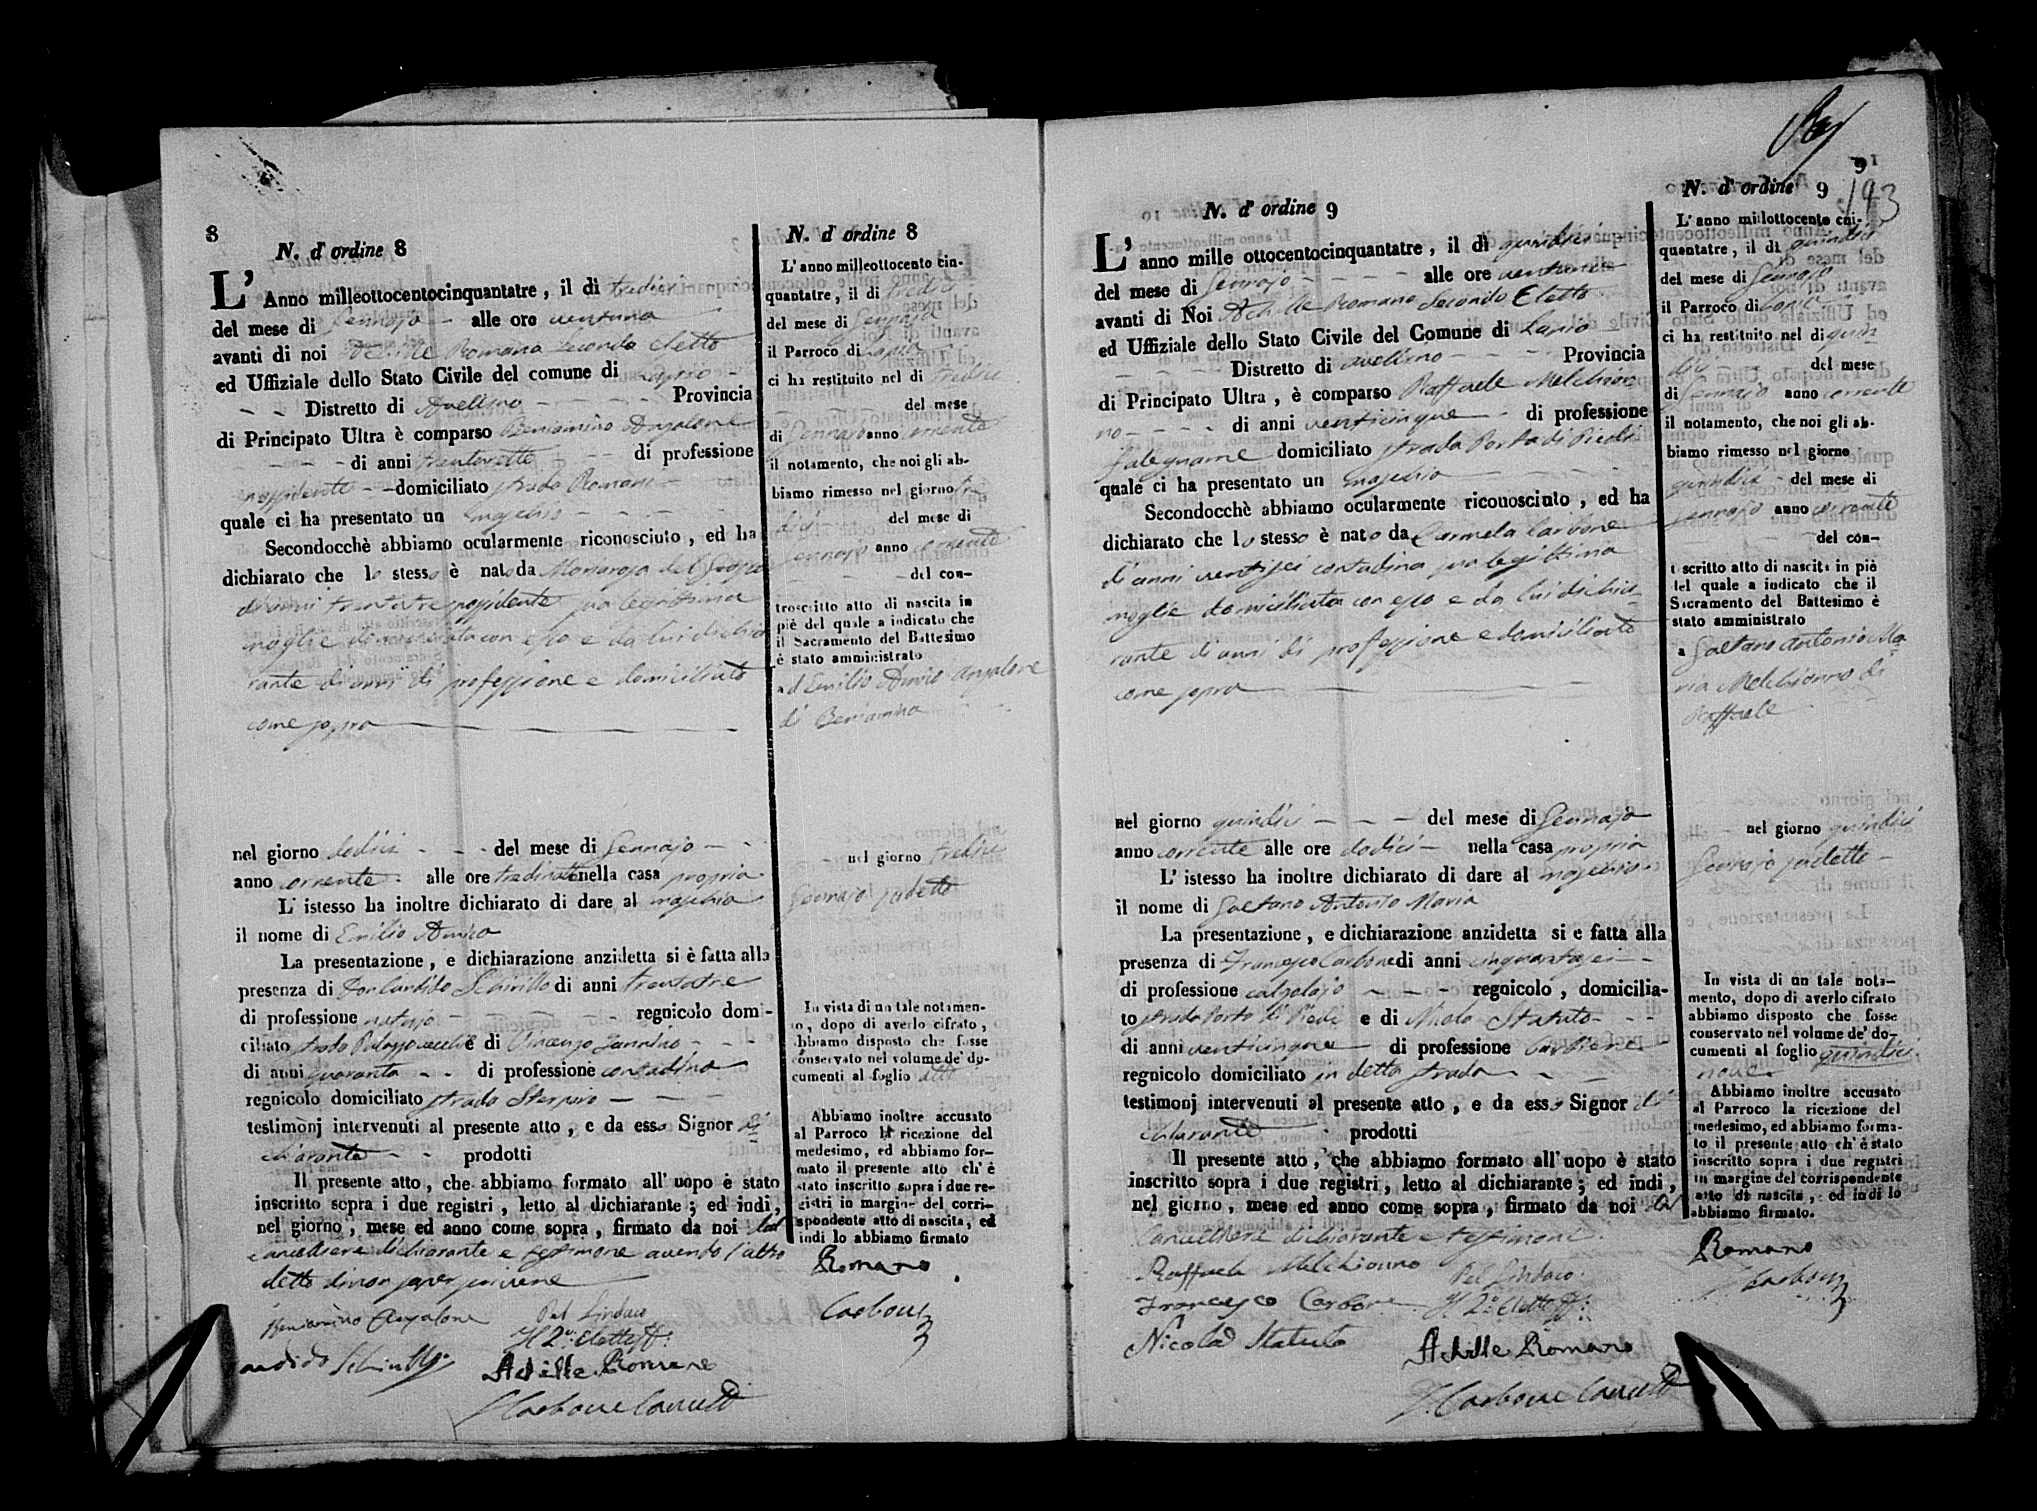 8
N. d' ordine 8
L' Anno milleottocentocinquantatre, il dì tredici
del mese di Gennajo - alle ore ventuna
avanti di noi Achille Romano Secondo eletto
ed Uffiziale dello Stato Civile del comune di Lapio
- - Distretto di Avellino - - - - Provincia
di Principato Ultra è comparso Beniamino Anzalone
- - - di anni trentasette - - di professione
possidente - - domiciliato strada Romani
quale ci ha presentato un maschio - - - -
Secondocchè abbiamo ocularmente riconosciuto, ed ha
dichiarato che lo stesso è nato da Mariarosa del
di anni trentatre possidente sua legittima
moglie domiciliata con esso e da lui dichia
rante di anni di professione e domiciliato
come sopra
nel giorno dodici - - - del mese di Gennajo - -
anno corrente. alle ore tredici nella casa propria
L' istesso ha inoltre dichiarato di dare al maschio
il nome di Emilio Amico
La presentazione, e dichiarazione anzidetta si è fatta alla
presenza di Don Candido Schirillo di anni trentatre
di professione notajo - - - - regnicolo domi-
ciliato strada Palazzo vecchio e di Vincenzo Iannino - - -
di anni quaranta - - di professione contadino
regnicolo domiciliato strada
testimonj intervenuti al presente atto, e da esso Signor di
chiarante - - prodotti
Il presente atto, che abbiamo formato all' uopo è stato
inscritto sopra i due registri, letto al dichiarante; ed indi,
nel giorno, mese ed anno come sopra, firmato da noi dal
cancelliere dichiarante e testimone avendo l'altro
detto di non saper scrivere
Beniamino Anzalone Pel Sindaco
Il 2º: Eletto ff:
Candido Schirillo Achille Romano
Carbone Cancell
N. d' ordine 8
L' anno milleottocento cin-
quantatre, il dì tredici
del mese di Gennajo
il Parroco di Lapio
ci ha restituito nel dì tredici
del mese
di Gennajo anno corrente
il notamento, che noi gli ab-
biamo rimesso nel giorno tre
dici del mese di
Gennajo anno corrente
- del con-
troscritto atto di nascita in
piè del quale a indicato che
il Sacramento del Battesimo
è stato amministrato
ad Emilio Amico Anzalone
di Beniamino
nel giorno tredici
Gennajo sudetto
In vista di un tale notamen-
to, dopo di averlo cifrato,
abbiamo disposto che fosse
conservato nel volume de' do-
cumenti al foglio
Abbiamo inoltre accusato
al Parroco la ricezione del
medesimo, ed abbiamo for-
mato il presente atto ch' è
stato inscritto sopra i due re-
gistri in margine del corri-
spondente atto di nascita, ed
indi lo abbiamo firmato
Romano
Carbone
9
193
N. d' ordine 9
L' anno mille ottocentocinquantatre, il dì quindici
del mese di Gennajo - - - - alle ore ventuna
avanti di Noi Achille Romano Secondo Eletto
ed Uffiziale dello Stato Civile del Comune di Lapio
- - - Distretto di Avellino - - - Provincia
di Principato Ultra, è comparso Raffaele Melchion
no - - - - di anni venticinque - di professione
falegname domiciliato strada Porta di Piedi
quale ci ha presentato un maschio
Secondocchè abbiamo ocularmente riconosciuto, ed ha
dichiarato che lo stesso è nato da Carmela Carbone
di anni ventisei contadina sua legittima
moglie domiciliata con esso e da lui dichia-
rante di anni di professione e domiciliato
come sopra
nel giorno quindici - - - del mese di Gennajo
anno corrente alle ore dodici - nella casa propria
L' istesso ha inoltre dichiarato di dare al maschio
il nome di Gaetano Antonio Maria
La presentazione, e dichiarazione anzidetta si e fatta alla
presenza di Francesco Carbone di anni cinquantasei - -
di professione calzolajo - - - regnicolo, domicilia-
to strada Porta di Piedi e di Nicola Statuto - - -
di anni venticinque - di professione Barbiere
regnicolo domiciliato in detta strada - - -
testimonj intervenuti al presente atto, e da esso Signor di
chiarante - prodotti
Il presente atto, che abbiamo formato all' uopo è stato
inscritto sopra i due registri, letto al dichiarante; ed indi,
nel giorno, mese ed anno come sopra, firmato da noi dal
Cancelliere dichiarante e testimoni.
Raffaele Melchionno Pel Sindaco:
Francesco Carbone Il 2º: Eletto ff:
Nicola Statuto Achille Romano
Carbone Cancell
N. d' ordine 9
L' anno millottocento cin-
quantatre, il dì quindici
del mese di Gennajo
il Parroco di Lapio
ci ha restituito nel dì quin-
dici del mese
di Gennajo anno corrente
il notamento, che noi gli ab-
biamo rimesso nel giorno
quindici - del mese di
Gennajo anno corrente
del con-
troscritto atto di nascita in piè
del quale a indicato che il
Sacramento del Battesimo è
stato amministrato
a Gaetano Antonio Ma
ria Melchionno di
Raffaele
nel giorno quindici
Gennajo sudetto -
In vista di un tale nota-
mento, dopo di averlo cifrato
abbiamo disposto che fosse
conservato nel volume de' do-
cumenti al foglio quindici
nove.
Abbiamo inoltre accusato
al Parroco la ricezione del
medesimo, ed abbiamo forma-
to il presente atto ch' è stato
inscritto sopra i due registri
in margine del corrispondente
atto di nascita, ed indi lo
abbiamo firmato.
Romano
Carbone